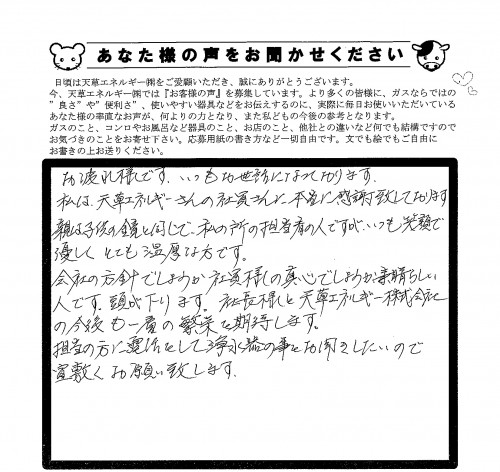 あなた様の声をお聞かせください
日頃は天草エネルギー㈱をご愛顧いただき、誠にありがとうございます。
今、天草エネルギー㈱では『お客様の声』を募集しています。より多くの皆様に、ガスならではの
”良さ”や”便利さ”、使いやすい器具などをお伝えするのに、実際に毎日お使いいただいている
あなた様の率直なお声が、何よりの力となり、また私どもの今後の参考となります。
ガスのこと、コンロやお風呂など器具のこと、お店のこと、他社との違いなど何でも結構ですので
お気づきのことをお寄せ下さい。応募用紙の書き方など一切自由です。文でも絵でもご自由に
お書きの上お送りください。
お疲れ様です。いつもお世話になっております。
私は、天草エネルギーさんの社員さんに本当に感謝致しております
親は子供の鏡と同じで、私の所の担当者の人ですが、いつも笑顔で
優しく とても温厚な方です。
会社の方針でしょうか 社員様の真心でしょうか素晴らしい
人です。頭が下ります。社長様と天草エネルギー株式会社
の今後も一番の繁栄を期待します。
担当の方に電話として浄水器の事とお聞きしたいので
宜敷くお願い致します。